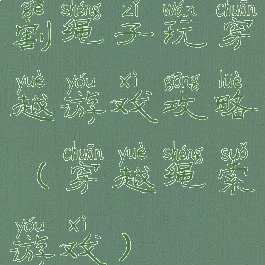 gē shéng zǐ wán chuān
割绳子玩穿
yuè yóu xì gōng lüè
越游戏攻略
chuān yuè shéng suǒ
(穿越绳索
yóu xì
游戏)